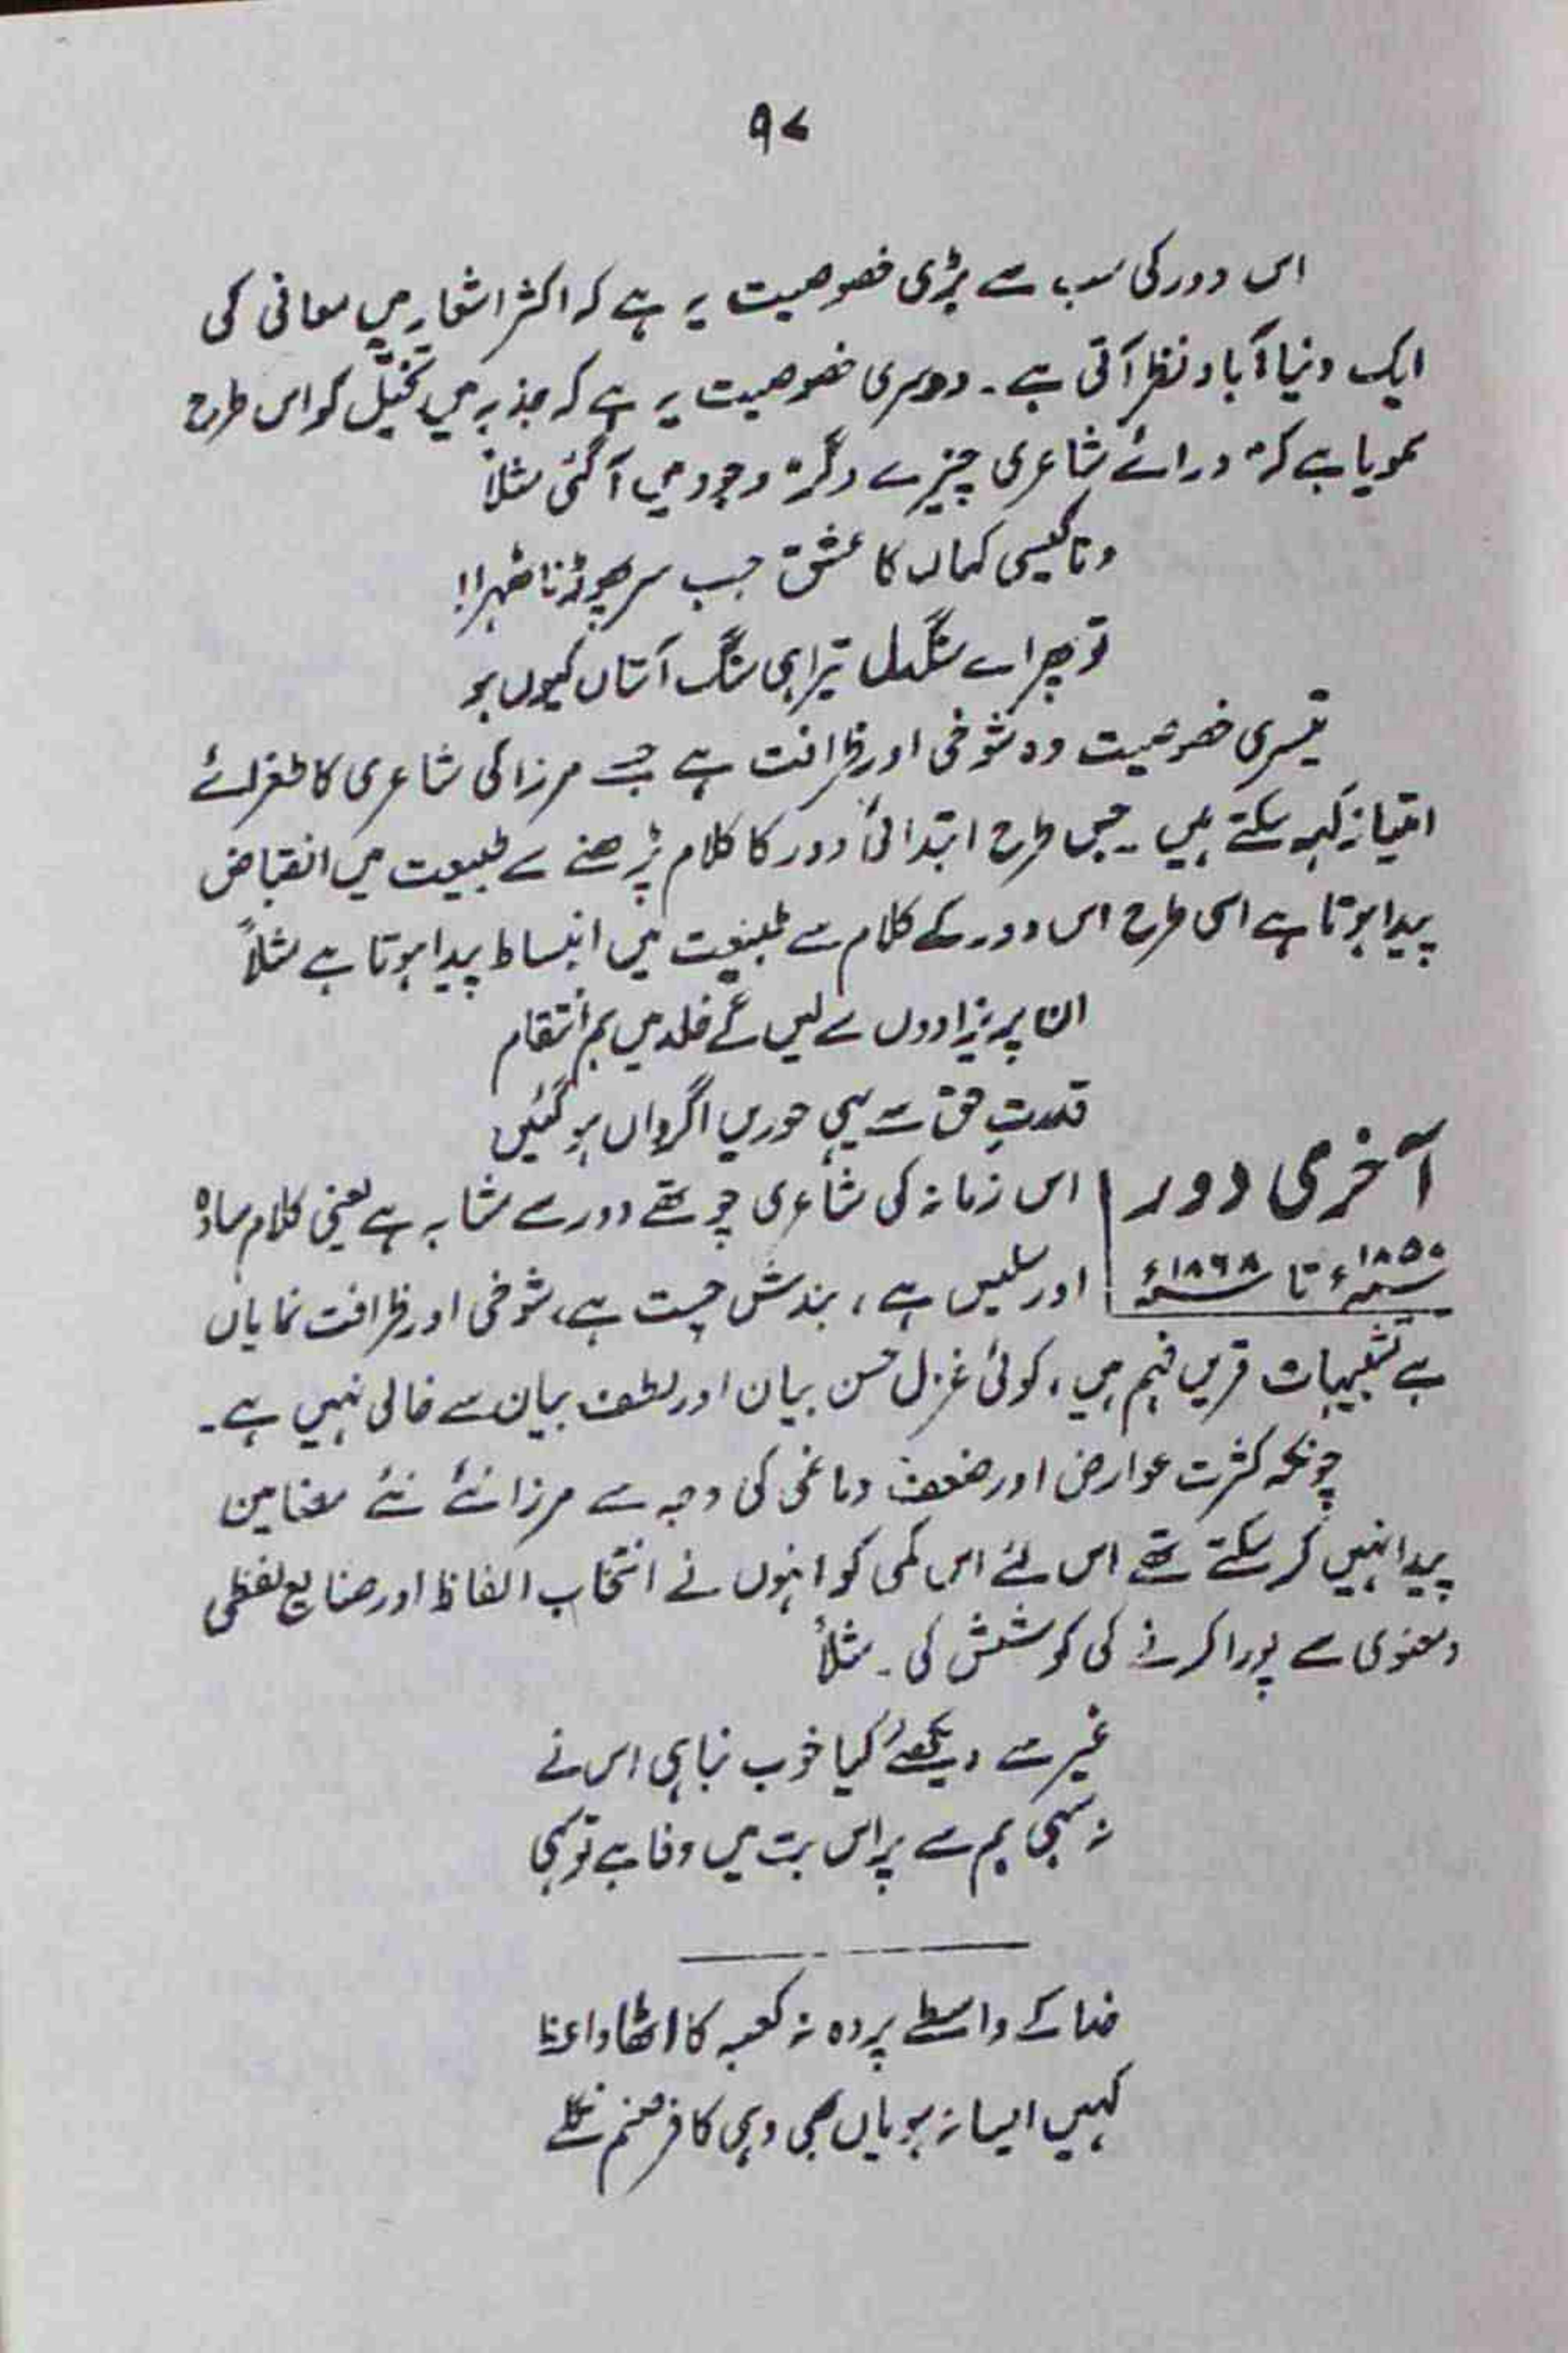 ۹۷
اس دور کی سب سے بڑی خصوصیت یہ ہے کہ اکثر اشعار میں معانی کی
ایک دنیا آباد نظر آتی ہے۔ دوسری خصوصیت یہ ہے کہ جذبہ میں تخیّل کو اس طرح
سمویا ہے کہ "ورائے شاعری چیزے دگر" وجود میں آگئی مثلاً
وفا کیسی کہاں کا عشق جب سر پھوڑنا ٹھہرا!
تو پھر اے سنگدل تیرا ہی سنگ آستاں کیوں ہو
تیسری خصوصیت وہ شوخی اور ظرافت ہے جسے مرزا کی شاعری کا طغرائے
امتیاز کہہ سکتے ہیں۔ جس طرح ابتدائی دور کا کلام پڑھنے سے طبیعت میں انقباض
پیدا ہوتا ہے اسی طرح اس دور کے کلام سے طبیعت میں انبساط پیدا ہوتا ہے مثلاً
ان پریزادوں سے لیں گے خلد میں ہم انتقام
قدرتِ حق سے یہی حوریں اگر واں ہوگئیں
آخری دور
۱۸۵۰ء تا ۱۸۶۸ء
اس زمانہ کی شاعری چوتھے دور سے مشابہ ہے یعنی کلام سادہ
اور سلیس ہے، بندش چست ہے، شوخی اور ظرافت نمایاں
ہے تشبیہات قریں فہم ہیں، کوئی غزل حسن بیان اور لطف بیان سے خالی نہیں ہے۔
چونکہ کثرت عوارض اور ضعف دماغی کی وجہ سے مرزا نئے نئے مضامین
پیدا نہیں کرسکتے تھے اس لئے اس کمی کو انہوں نے انتخاب الفاظ اور صنایع لفظی
و معنوی سے پورا کرنے کی کوشش کی۔ مثلاً
غیر سے دیکھئے کیا خوب نباہی اس نے
نہ سہی ہم سے پر اس بت میں وفا ہے تو سہی
خدا کے واسطے پردہ نہ کعبہ کا اٹھا واعظ
کہیں ایسا نہ ہو یاں بھی وہی کافر صنم نکلے